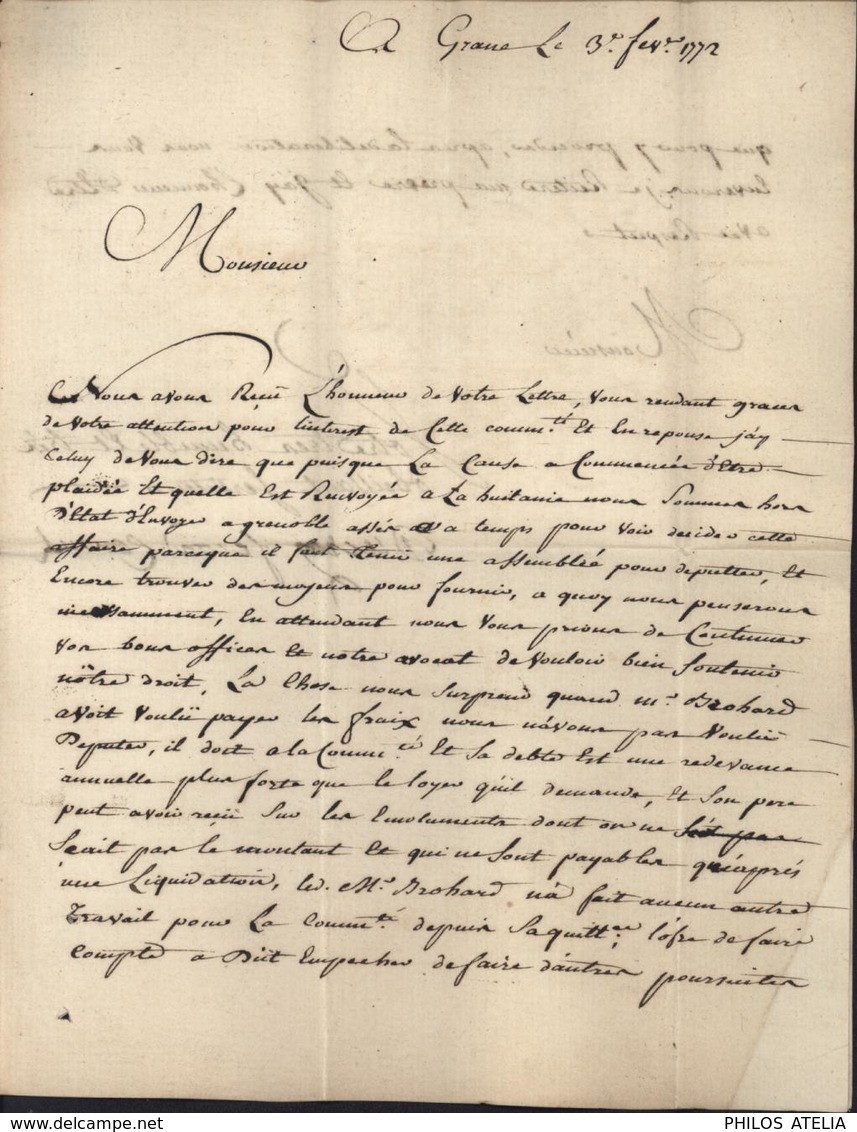 A Grane Le 3e. fevr. 1772
Monsieur
Nous avons Reçu L'honneur de votre Lettre, vous rendant graces
de votre attention pour l'interest de Cette commté. Et En reponse j'ay
Celuy de vous dire que puisque La Cause a Commencée d'Etre
plaidée Et quelle Est Renvoyée a La huitanie nous Sommes hors
D'Etat d'Envoyer a grenoble assés a temps pour voir decider cette
affaire parceque il faut Tenir une assemblée pour deputter, Et
Encore trouver des moyens pour fournir, a quoy nous penserons
incessamment, En attendant nous vous prions de Continuer
vos bons offices Et nôtre avocat de vouloir bien soutenir
nôtre droit, La Chose nous surprend quand mr. Brohard
avoit voulû payer les fraix nous n'avons pas voulû
Deputer, il doit a la Commté. Et Sa debte Est une redevance
annuelle plus forte que le loyer qu'il demande, Et Son pere
peut avoir reçû Sur les Emoluments dont on ne
Scait pas le montant Et qui ne Sont payables qu'aprés
une Liquidation, led. Mr. Brohard n'a fait aucun autre
Travail pour La Commté. depuis Sa quittce. l'ofre de faire
compte a Dût Empecher de faire d'autres poursuites
PHILOS ATELIA